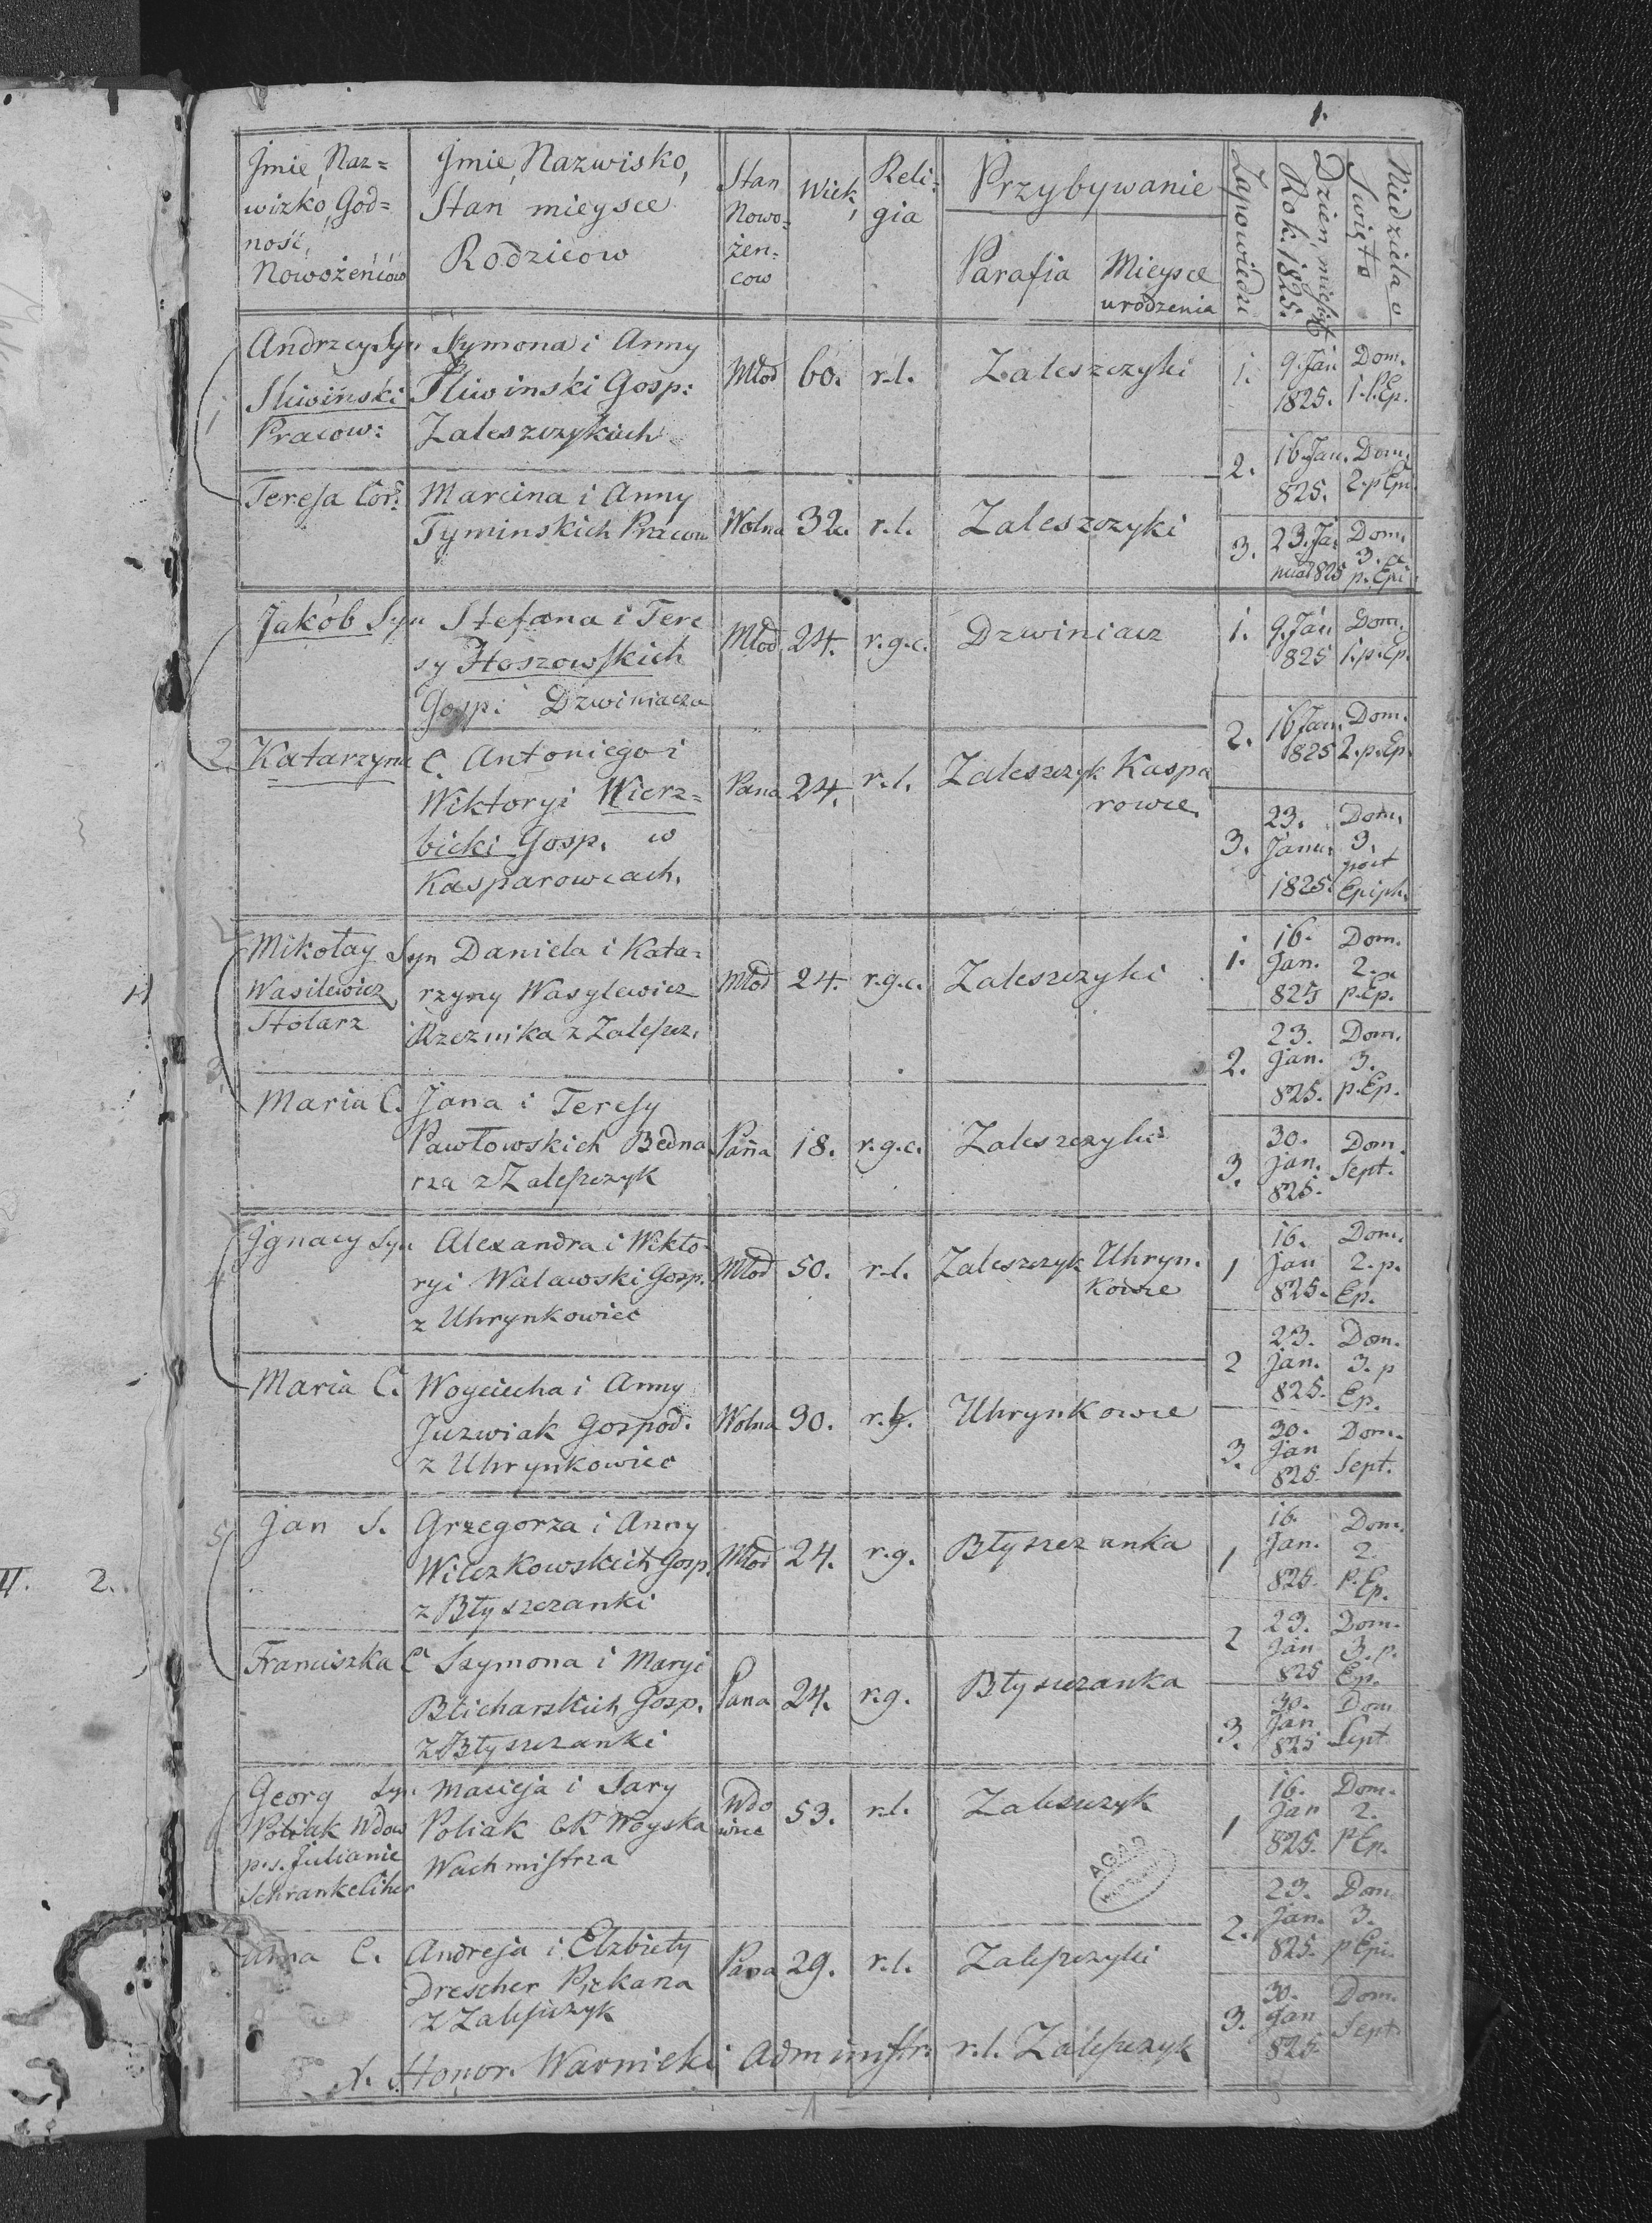 1.
Jmie, Naz=
wizko, God=
ność,
Nowożeńców
Jmie, Nazwisko,
Stan mieysce
Rodzicow
Stan
Nowo=
żen=
cow
Wiek,
Reli=
gia
Przybywanie
Parafia
Mieysce
urodzenia
Zapowiedzi
Dzień, miesiąc
Rok. 1825.
Niedziela o
Swięto
1
Andrzey Syn
Sliwiński
Pracow:
Szymona i Anny
Sliwinski Gosp:
Zaleszczykach
Młod
60.
r.l.
Zaleszczyki
1.
9. Jan
1825.
Dom.
1. p. Ep.
2.
16. Jan.
825.
Dom.
2. p Epi.
Teresa Cór:
Marcina i Anny
Tyminskich Pracow
Wolna
32.
r.l.
Zaleszczyki
3.
23. Ja
nuar 825
Dom.
3.
p. Epi
2.
Jakób Syn
Stefana i Tere
sy Hoszowskich
Gosp: Dzwiniacza
Młod
24.
r.g.c.
Dzwiniacz
1.
9. Jan
825
Dom.
1. p. Ep.
2.
16 Jan.
1825
Dom.
2. p. Ep.
Katarzyna
C. Antoniego i
Wiktoryi Wierz=
bicki Gosp. w
Kasparowcach.
Pana
24.
r.l.
Zaleszczyk
Kaspa
rowce
3.
23.
Janu.
1825.
Dom.
3.
post
Epiph.
Mikołay Syn
Wasilewicz
Stolarz
Daniela i Kata=
rzyny Wasylewicz
Rzeznika z Zaleszcz.
Młod
24.
r.g.c.
Zaleszczyki
1.
16.
Jan.
825
Dom.
2.
p. Ep.
2.
23.
Jan.
825.
Dom.
3.
p. Ep.
Maria C.
Jana i Teresy
Pawłowskich Bedna
rza z Zaleszczyk
Pańa
18.
r.g.c.
Zaleszczyki
3.
30.
Jan.
825.
Dom.
Sept.
Jgnacy Syn
Alexandra i Wikto
ryi Walawski Gosp.
z Uhrynkowiec
Młod
50.
r.l.
Zaleszczyk
Uhryn.
kowce
1
16.
Jan
825.
Dom.
2. p.
Ep.
2
23.
Jan.
825.
Dom.
3. p
Ep.
Maria C.
Woyciecha i Anny
Juzwiak Gospod.
z Uhrynkowiec
Wolna
30.
Uhrynkowce
3.
30.
Jan
825.
Dom.
Sept.
5
Jan S.
Grzegorza i Anny
Wilczkowskich Gosp.
z Błyszczanki
Młod
24.
r.g.
Błyszczanka
1
16.
Jan.
825.
Dom.
2.
p. Ep.
2
23.
Jan
825
Dom.
3. p.
Ep.
Franciszka C
Szymona i Maryi
Blicharskich Gosp.
z Błyszczanki
Pana
24.
r.g.
Błyszczanka
3.
30.
Jan
825
Dom
Sept.
II. 2.
Georg Syn
Poliak Wdow
p. s. Julianie
Macieja i Sary
Poliak CK Woyska
Wachmistrza
Wdo
wiec
53.
r.l.
Zaleszczyk
1
16.
Jan
825.
Dom.
2.
p Ep.
2.
23.
Jan.
825.
Dom
3.
p Epi.
Anna C.
Andreja i Elzbiety
Drescher Piekarza
z Zaleszczyk
Pana
29.
r.l.
Zaleszczyki
3.
30.
Jan
825.
Dom.
Sept.
X. Honor. Warnicki Administr. r.l. Zaleszczyk
AGAD
-1-